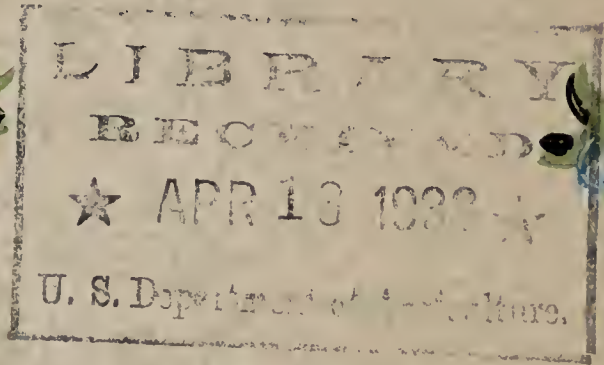 LIBRARY
RECEIVED
★ APR 13 ☆
U. S. Department of Agriculture.